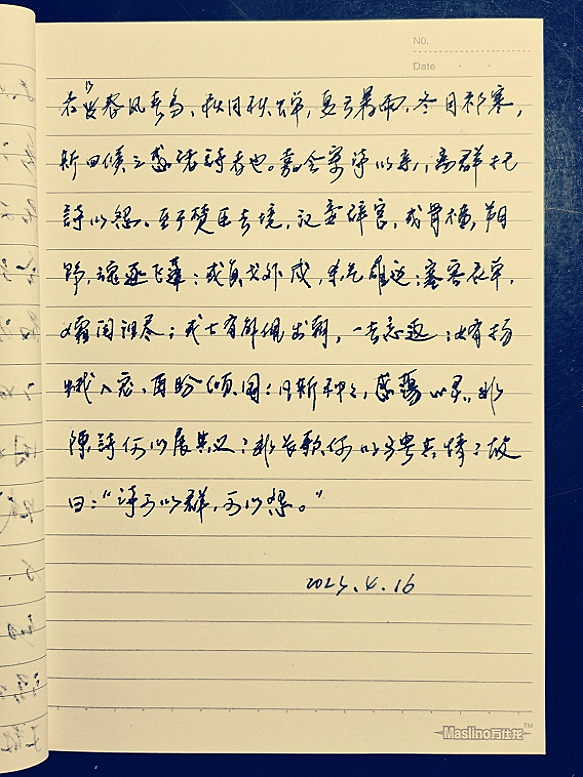 NO.
Date
若乃春风春鸟,秋月秋蝉,夏云暑雨,冬月祁寒,
斯四候之感诸詩者也。嘉会寄诗以亲,离群托
詩以怨。至于楚臣去境,汉妾辞宫,或骨横朔
野,魂逐飞蓬;或负戈外戍,杀气雄边;塞客衣单,
孀闺泪尽;或士有解佩出朝,一去忘返;女有扬
蛾入宠,再盼倾国:凡斯种种,感荡心灵,非
陳詩何以展其义?非长歌何以骋其情?故
曰:“诗可以群,可以怨。”
2025.4.16
Maslino万仕龙
TM